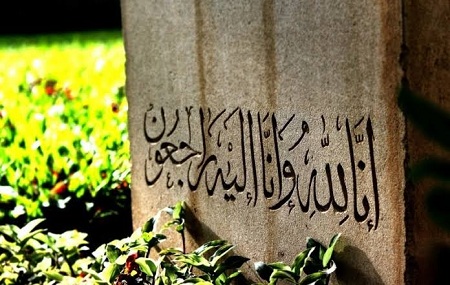 إنَّا لِلّٰهِ وَإنَّا إليْهِ راجعُون